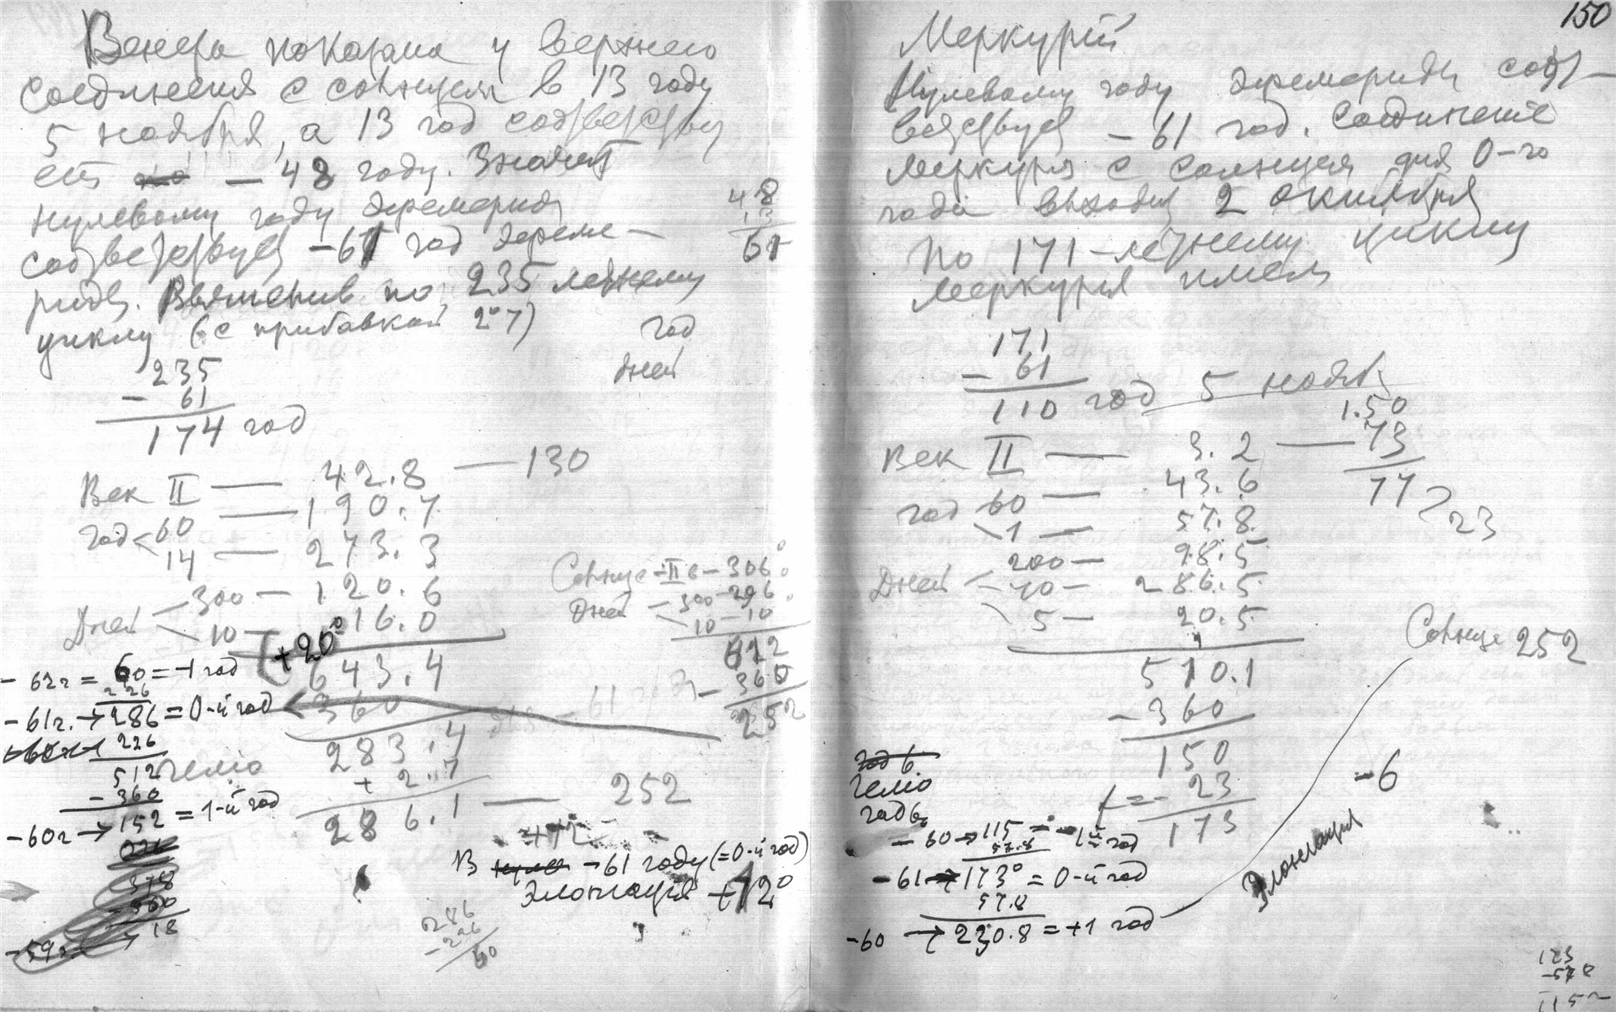 Венера показана у верхнего
соединения с солнцем в 13 году
5 ноября, а 13 год соответству
ет — 48 году. Значит
нулевому году эфемерид
соответствует -61 год эфеме-
рид. Вычислив по 235 летнему
циклу (с прибавкой 2°7)
48
13
61
год
дней
235
— 61
174 год
Век II — 42.8 — 130
год 60 — 190.7
14 — 273.3
Дней 300 — 120.6
10 — 16.0
(+20°
643.4
360
283.4
+ 2.7
286.1 — 252
Солнце II в — 306°
Дней — 300 — 296
10 — 10
612
— 360
252
- 62г = 60 = -1 год
226
-61г. → 286 = 0-й год
226
512
гелио
- 360
-60г → 152 = 1-й год
378
360
18
-59г →
В -61 году (=0-й год)
Элонгация +12°
286
- 226
60
150
Меркурий
Нулевому году эфемерид соот-
ветствует -61 год. Соединение
Меркурия с солнцем для 0-го
года выходит 2 октября
По 171-летнему циклу
Меркурия имеем
171
— 61
110 год 5 нояб
Век II — 3.2 —
1.50
73
77
23
год 60 — 43.6
1 — 57.8
Дней 200 — 98.5
70 — 286.5
5 — 20.5
510.1
— 360
150
23
173
Солнце 252
-6
Элонгация
год в
гелио
годв
— 60 → 115 = -1й год
57.8
-61 → 173° = 0-й год
57.8
-60 → 230.8 = +1 год
173
-578
1152